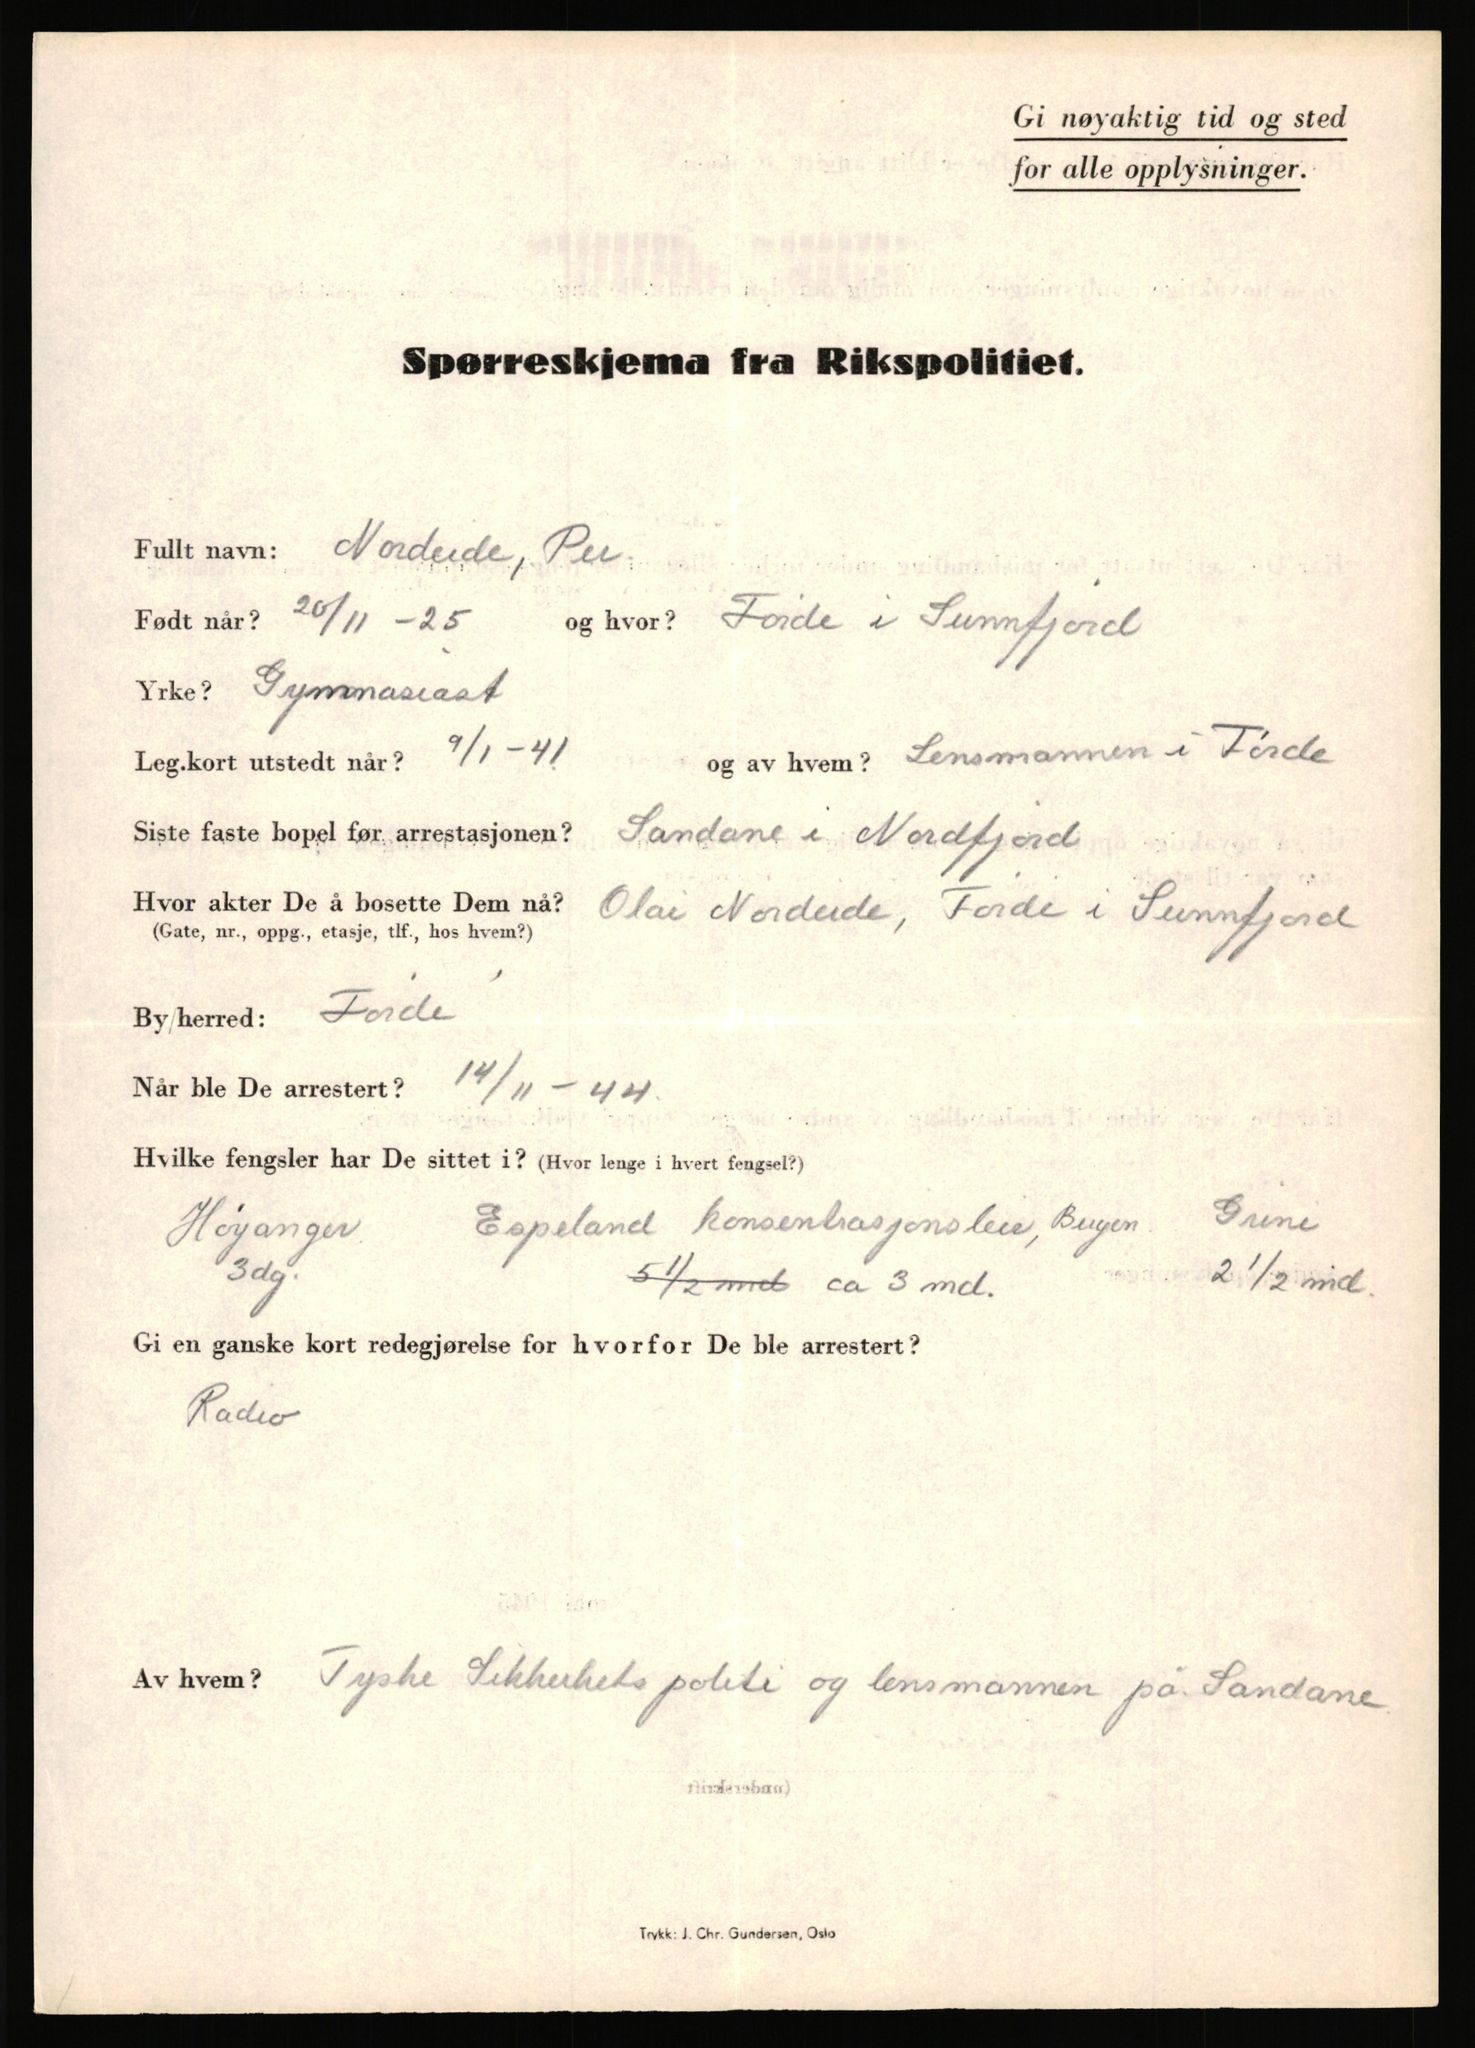 Gi nøyaktig tid og sted
for alle opplysninger.
Spørreskjema fra Rikspolitiet.
Fullt navn: Nordeide, Per.
Født når? 20/11 - 25 og hvor? Førde i Sunnfjord
Yrke? Gymnasiast
Leg.kort utstedt når? 9/1 - 41 og av hvem? Lensmannen i Førde
Siste faste bopel før arrestasjonen? Sandane i Nordfjord
Hvor akter De å bosette Dem nå? Olai Nordeide, Førde i Sunnfjord
(Gate, nr., oppg., etasje, tlf., hos hvem?)
By/herred: Førde
Når ble De arrestert? 14/11 - 44.
Hvilke fengsler har De sittet i? (Hvor lenge i hvert fengsel?)
Høyanger. Espeland konsentrasjonsleir, Bergen. Grini
3dg. 5 1/2 md ca 3 md. 2 1/2 md.
Gi en ganske kort redegjørelse for hvorfor De ble arrestert?
Radio
Av hvem? Tyske Sikkerhets politi og lensmannen på Sandane.
(underskrift
Trykk: J. Chr. Gundersen, Oslo